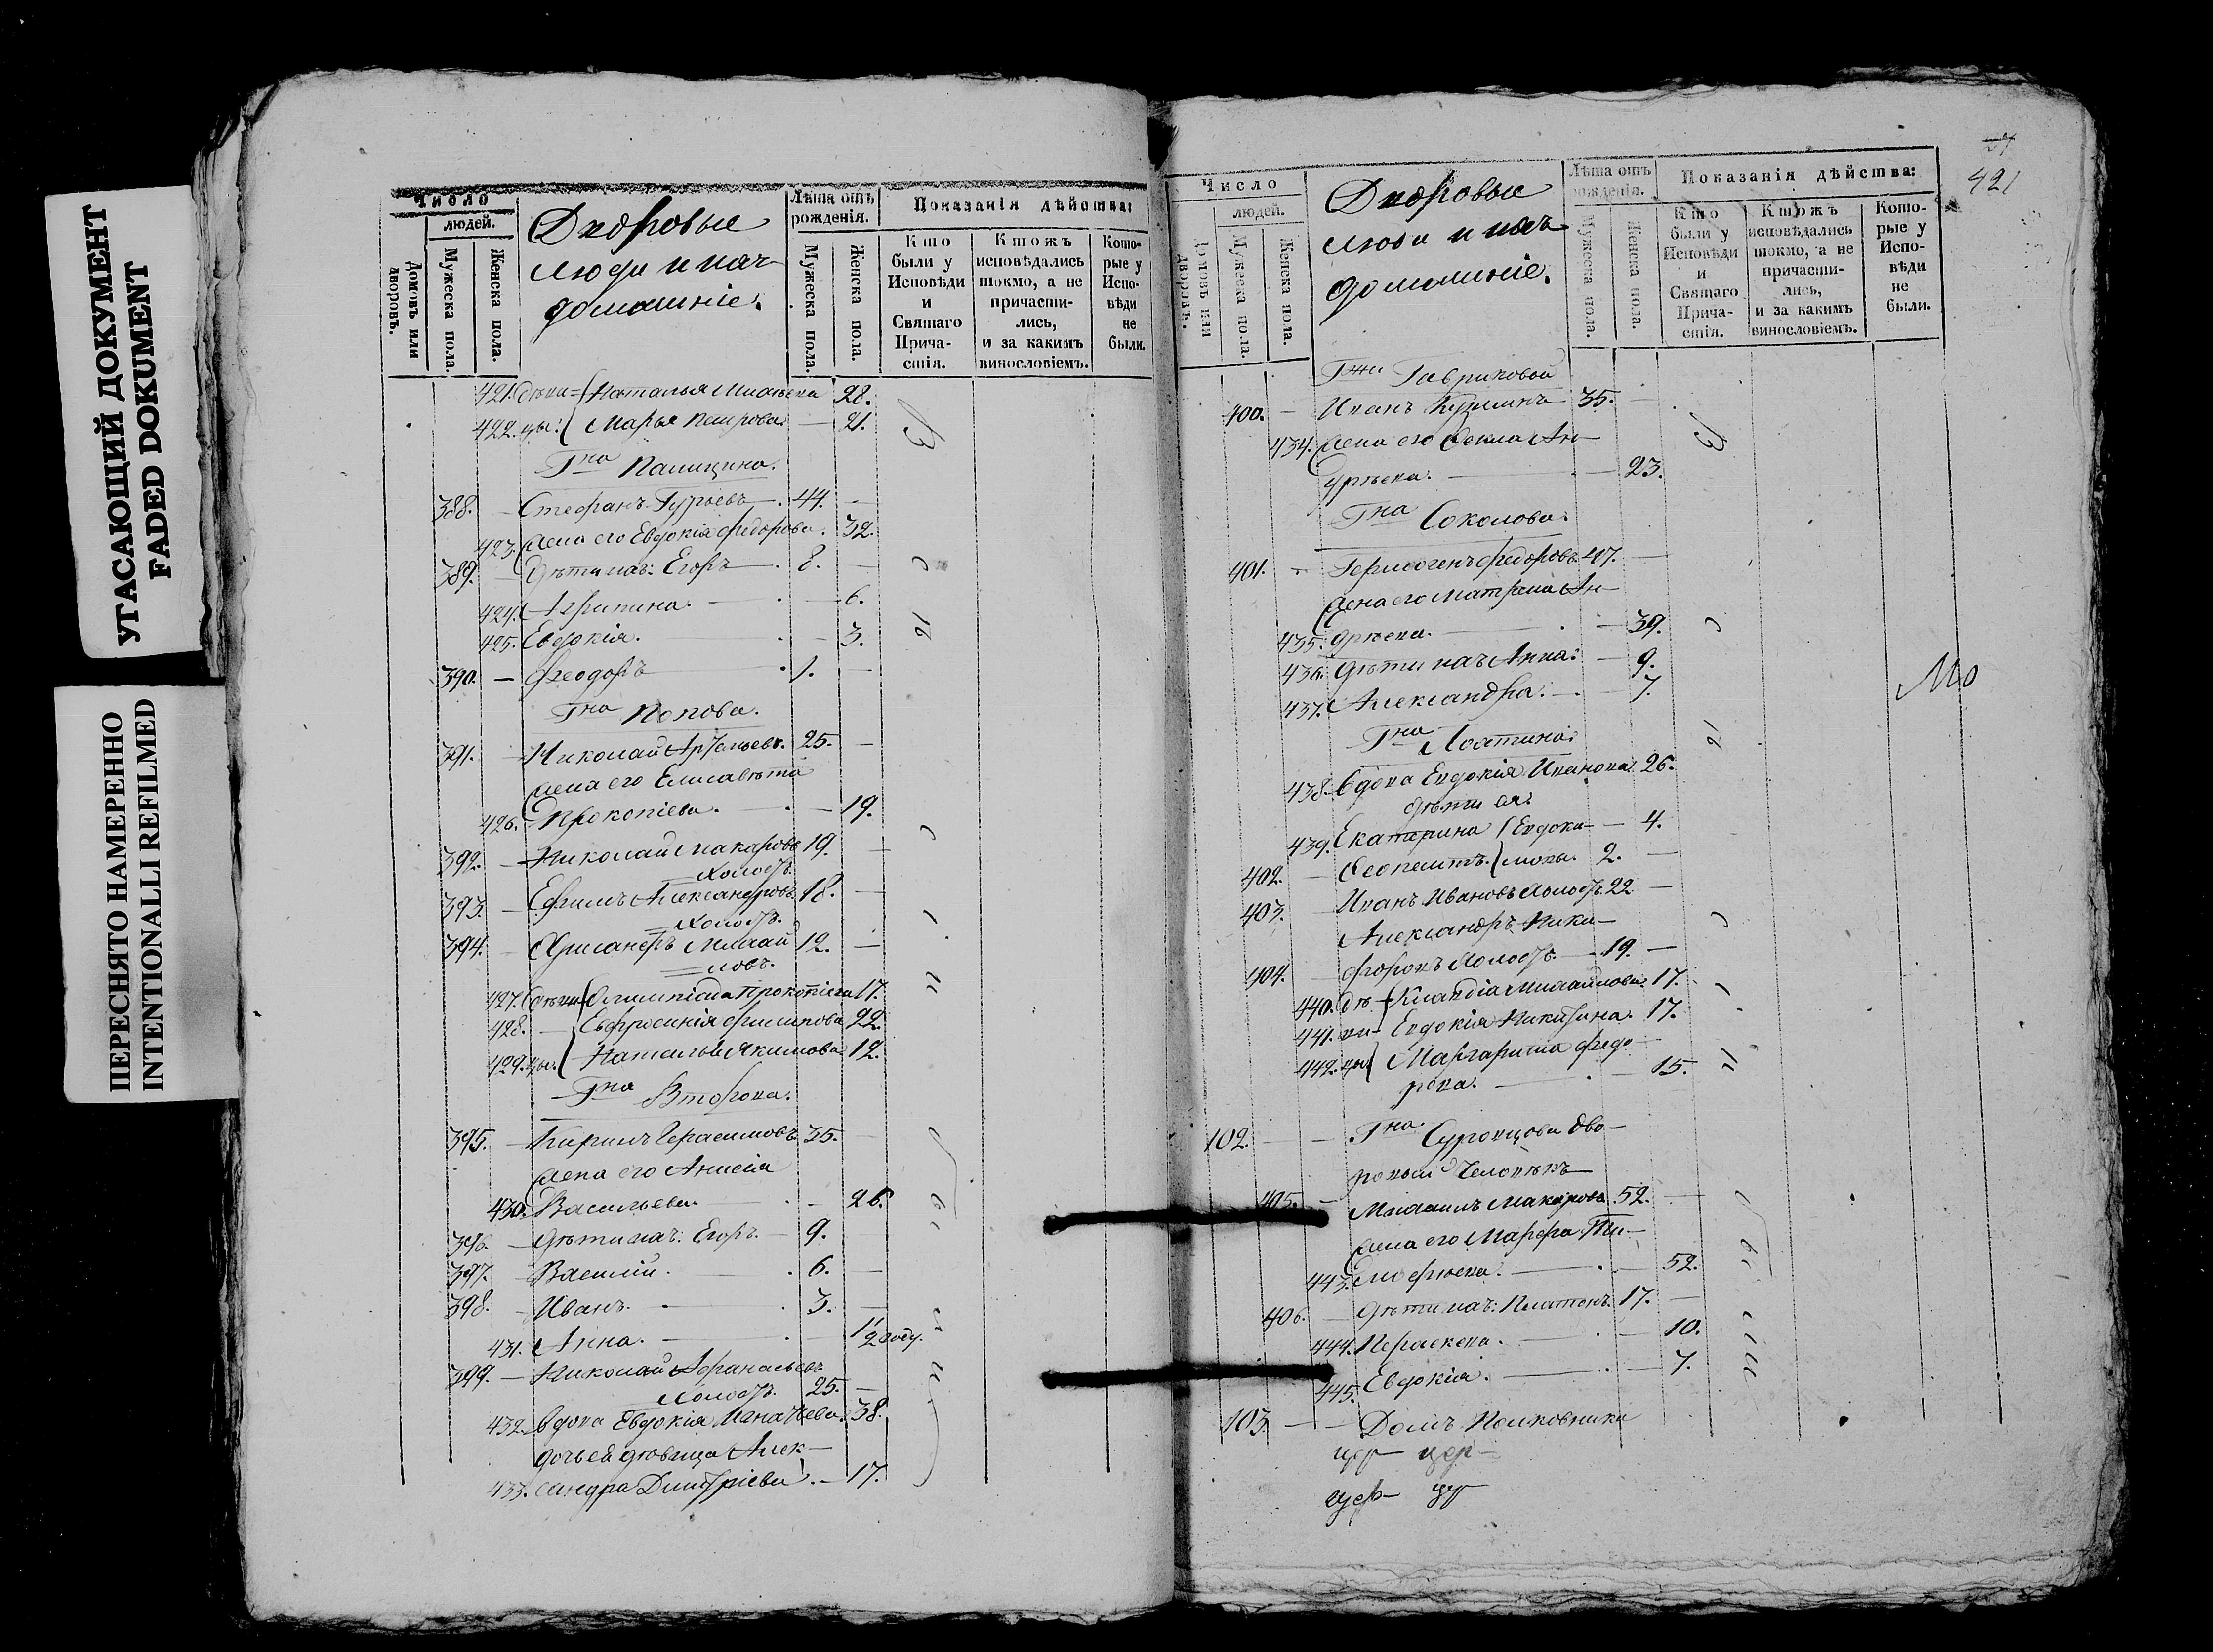 УГАСАЮЩИЙ ДОКУМЕНТ
FADED DOKUMENT
ПЕРЕСНЯТО НАМЕРЕННО
INTENTIONALLI REFILMED
Число
людей.
Домовъ или дворовъ.
Мужеска пола.
Женска пола.
Дворовые
люди и ихъ
домашніе.
Лѣта отъ рожденія.
Мужеска пола.
Женска пола.
Показанія дѣйства:
Кто были у Исповѣди и Святаго Причастія.
Ктожъ исповѣдались токмо, а не причастились, и за какимъ винословіемъ.
Которые у Исповѣди не были.
421. дѣви- Наталья 28.
422. цы: Марья Петрова — 21.
Гна Палицина.
388. — Стефанъ Гурьевъ 44. —
423. Жена его Евдокія Федорова. 32.
389. — Дѣти ихъ: Егоръ 8. —
424. Агрипина. — 6.
425. Евдокія. — 3.
390. — Феодоръ 1. —
Гна Попова.
391. Николай 25. —
Жена его Елисавета
426. Прокопіева. — 19.
392. — Николай Макаровъ 19. —
холостъ.
393. — Ефимъ Александровъ 18. —
холостъ.
394. — Хрисанфъ Михай 12. —
ловъ.
427. дѣви Олимпіада Прокопіева 17.
428. Евфросинія Филипова 22.
429. цы. Наталья Якимова 12.
Гна Второва.
395. — Кирилъ Герасимовъ 35. —
Жена его Анисія
430. Васильева. — 26.
396. — Дѣти ихъ: Егоръ. — 9. —
397. — Василій. 6. —
398. — Иванъ. 3. —
431. Анна. — 1/2 году.
399. — Николай Афанасьевъ
холостъ. 25. —
432. Вдова Евдокія 38.
дочь ей дѣвица Алек-
433. сандра Димитріева. — 17.
421
Число
людей.
Домовъ или дворовъ.
Мужеска пола.
Женска пола.
Дворовые
люди и ихъ
домашніе.
Лѣта отъ рожденія.
Мужеска пола.
Женска пола.
Показанія дѣйства:
Кто были у Исповѣди и Святаго Причастія.
Ктожъ исповѣдались токмо, а не причастились, и за какимъ винословіемъ.
Которые у Исповѣди не были.
Гжи Гавриковой
400. — Иванъ 35. —
434. Жена его Фекла Ан-
дрѣева. — 23.
Гна Соколова.
401. — Гермогенъ Федоровъ 47. —
Жена его Матрена Ан-
435. дрѣева. — 39.
436. Дѣти ихъ Анна: — 9.
437. Александра. — 7.
Гна
438. Вдова Евдокія Иванова 26.
дѣти ея:
439. Екатерина Евдоки- — 4.
402. — мовы. 2. —
403. — Иванъ Ивановъ холостъ. 22 —
Александръ Ники-
404. — форовъ холостъ. — 19. —
440. дѣ- Клавдія Михайлова. 17.
441. ви- Евдокія Никитина. 17.
442. цы Маргарита Федо-
рова. — 15.
102. — — Гна Суровцова дво-
ровый человѣкъ
405. — Михаилъ Макаровъ 52. —
Жена его Марфа Ти-
443. — 52.
406. — Дѣти ихъ: Платонъ. 17. —
444. Параскева. — 10.
445. Евдокія. — 7.
103. — — Домъ Полковника